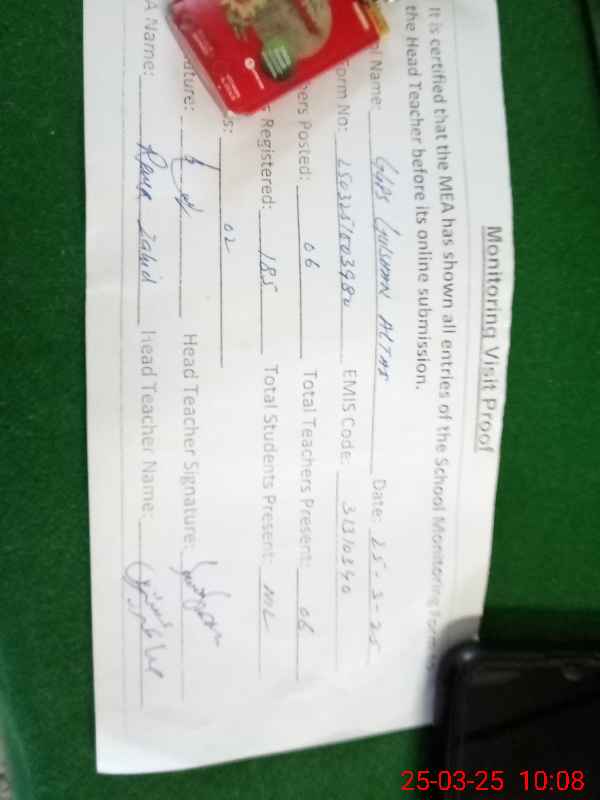 Monitoring Visit Proof
It is certified that the MEA has shown all entries of the School Monitoring
the Head Teacher before its online submission.
Name: GHPS Gulshan Altaf Date: 25-3-25
orm No: EMIS Code: 31310340
hers Posted: 06 Total Teachers Present: 06
Registered: 185 Total Students Present: NIL
s: 02
ature: Head Teacher Signature:
A Name: Rana Zahid Head Teacher Name:
25-03-25 10:08